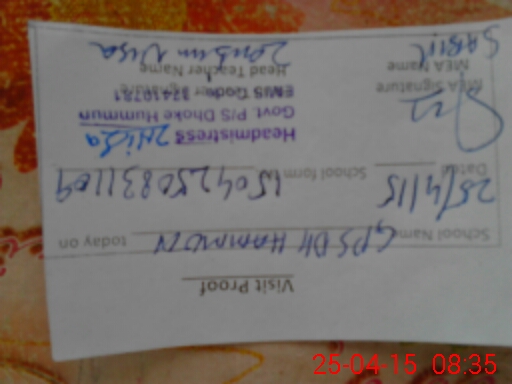 Visit Proof
School Name GPS DH HAMMUN today on
25/4/15 School form no 150425083109
Dated
Headmistress
Govt. P/S Dhoke Hummun
EMIS Code 37410781
MEA Signature
Head Teacher Name Zaib un Nisa
MEA Name SABIR
25-04-15 08:35